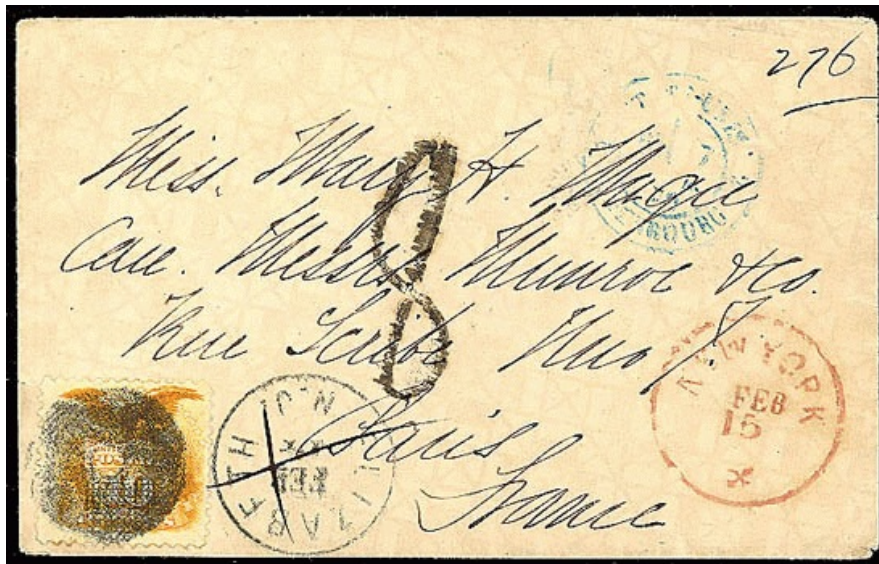 276
Miss. Mary H. Magee
Care. Messrs Munroe & Co.
Rue Scribe Nuo 7.
Paris
France
8
NEW YORK
FEB
15
ELIZABETH N.J.
FEB
10
CHERBOURG